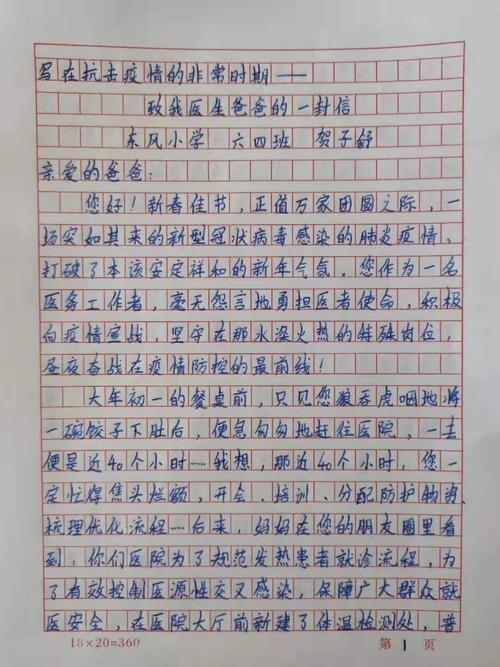 写在抗击疫情的非常时期——
致我医生爸爸的一封信
东风小学 六四班 贺子舒
亲爱的爸爸:
您好!新春佳书,正值万家团圆之际,一
场突如其来的新型冠状病毒感染的肺炎疫情,
打破了本该安定祥和的新年气氛。您作为一名
医务工作者,毫无怨言地勇担医者使命,积极
向疫情宣战,坚守在那水深火热的特殊岗位,
昼夜奋战在疫情防控的最前线!
大年初一的餐桌前,只见您狼吞虎咽地将
一碗饺子下肚后,便急匆匆地赶往医院,一去
便是近40个小时……我想,那近40个小时,您一
定忙得焦头烂额,开会、培训、分配防护物资、
梳理优化流程……后来,妈妈在您的朋友圈里看
到:你们医院为了规范发热患者就诊流程,为
了有效控制医源性交叉感染,保障广大群众就
医安全,在医院大厅前新建了体温检测处,普
18×20=360 第 1 页